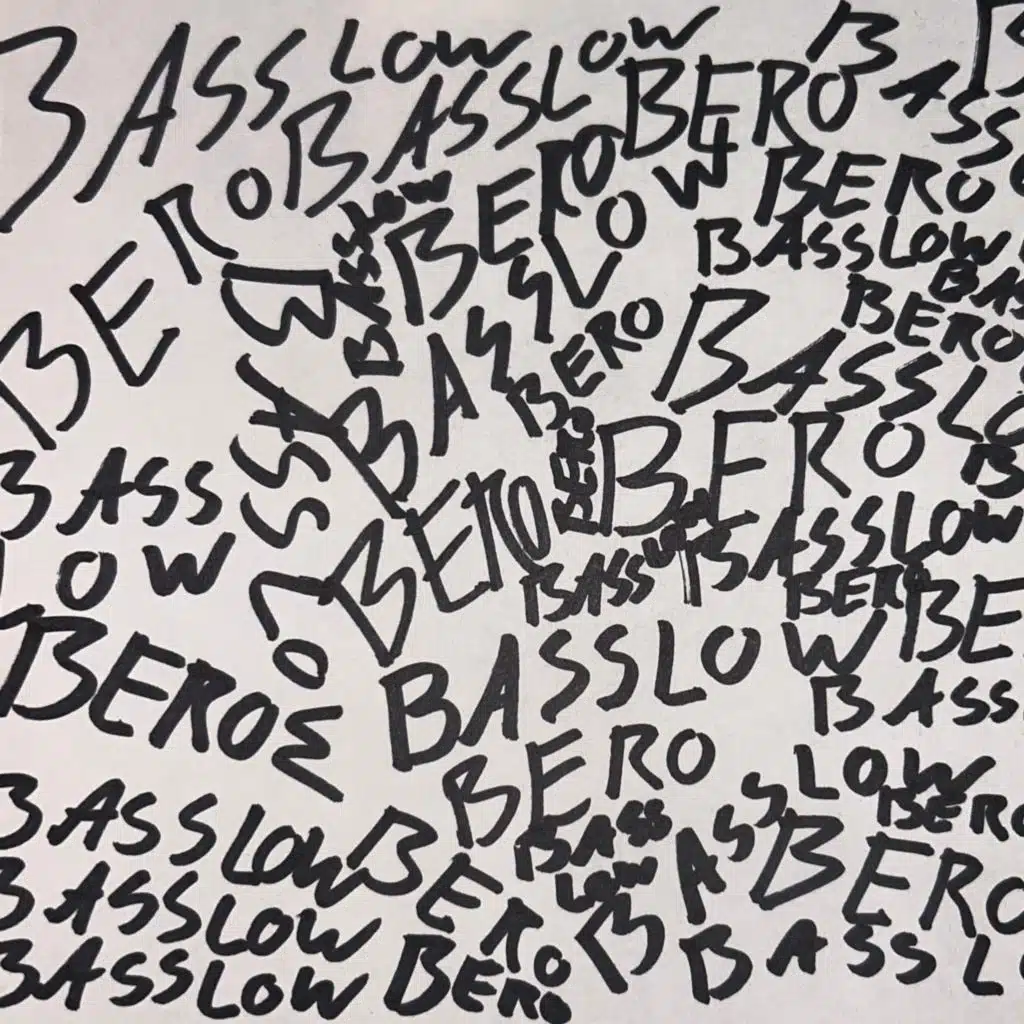 BASSLOW
BASSLOW
BERO
BASS
BERO
BERO
BERO
BASSLOW
BASSLOW
BASSLOW
BERO
BASSLOW
BERO
BASSLO
BASSLOW
BERO
BERO
BASS
LOW
BASSLOW
BERO
BERO
BASSLOW
BERO
BE
BERO
BASSLOW
BASS
BERO
BASSLOW
BERO
BASSLOW
BERO
BASS
LOW
BERO
BASSLOW
BASSLOW
BERO
BASSL